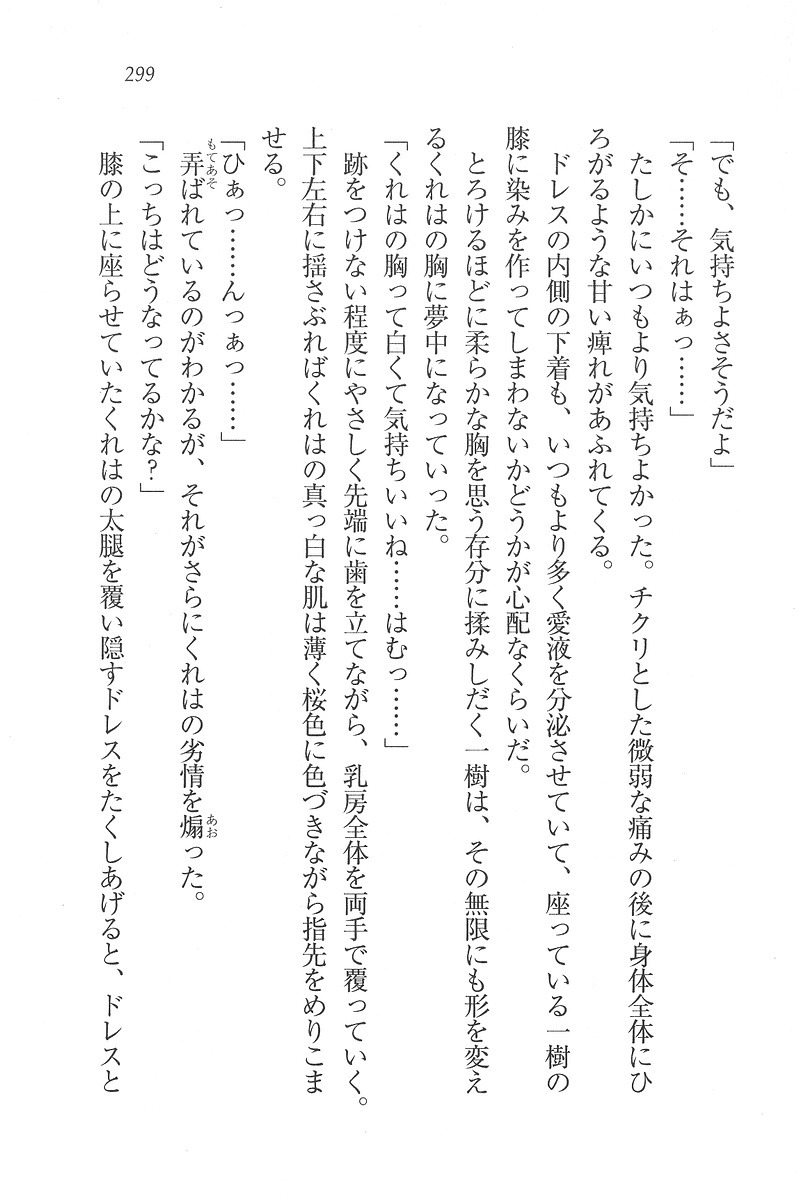 299
「でも、気持ちよさそうだよ」
「そ……それはぁっ……」
たしかにいつもより気持ちよかった。チクリとした微弱な痛みの後に身体全体にひ
ろがるような甘い痺れがあふれてくる。
ドレスの内側の下着も、いつもより多く愛液を分泌させていて、座っている一樹の
膝に染みを作ってしまわないかどうかが心配なくらいだ。
とろけるほどに柔らかな胸を思う存分に揉みしだく一樹は、その無限にも形を変え
るくれはの胸に夢中になっていった。
「くれはの胸って白くて気持ちいいね……はむっ……」
跡をつけない程度にやさしく先端に歯を立てながら、乳房全体を両手で覆っていく。
上下左右に揺さぶればくれはの真っ白な肌は薄く桜色に色づきながら指先をめりこま
せる。
「ひぁっ……んっぁっ……」
弄ばれているのがわかるが、それがさらにくれはの劣情を煽った。
もてあそ
あお
「こっちはどうなってるかな?」
膝の上に座らせていたくれはの太腿を覆い隠すドレスをたくしあげると、ドレスと